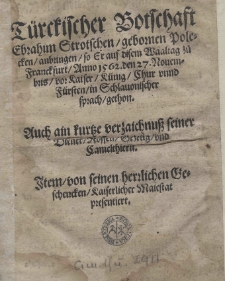 Türckischer Botschaft
Ebrahim Strotschen / gebornen Pole-
cken / anbringen / so Er auf disem Waaltag zů
Franckfurt / Anno 1562. den 27. Nouem-
bris / vor Kaiser / Künig / Chur vnnd
Fürsten / in Schlauonischer
sprach / gethon.
Auch ain kurtze verzaichnuß seiner
Diener / Rossen / Gezeüg / vnd
Camelthiern.
Item / von seinen herzlichen Ge-
schencken / Kaiserlicher Maiestat
presentiert.